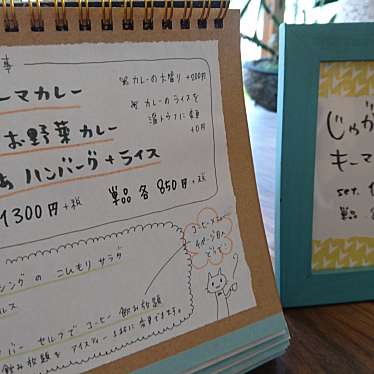 事
ーマカレー
お野菜カレー
ハンバーグ+ライス
1300円+税
単品 各 850円+税
※カレーの大盛り +100円
※カレーのライスを
温トウフに変更
+0円
シングの こんもりサラダ
ルス
バー セルフで コーヒー飲み放題
飲み放題を アイスティー
コーヒーメニュー
どうぞ
じゃが
キーマ
set.
単品